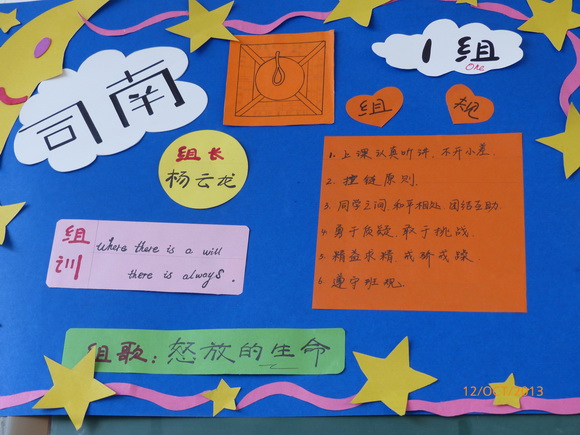 司南
1组
One
组规
组长
杨云龙
1. 上课认真听讲,不开小差.
2. 控链原则.
3. 同学之间,和平相处,团结互助.
4. 勇于质疑,敢于挑战.
5. 精益求精 戒骄戒躁.
6. 遵守班规.
组训
Where there is a will
there is always.
组歌:怒放的生命